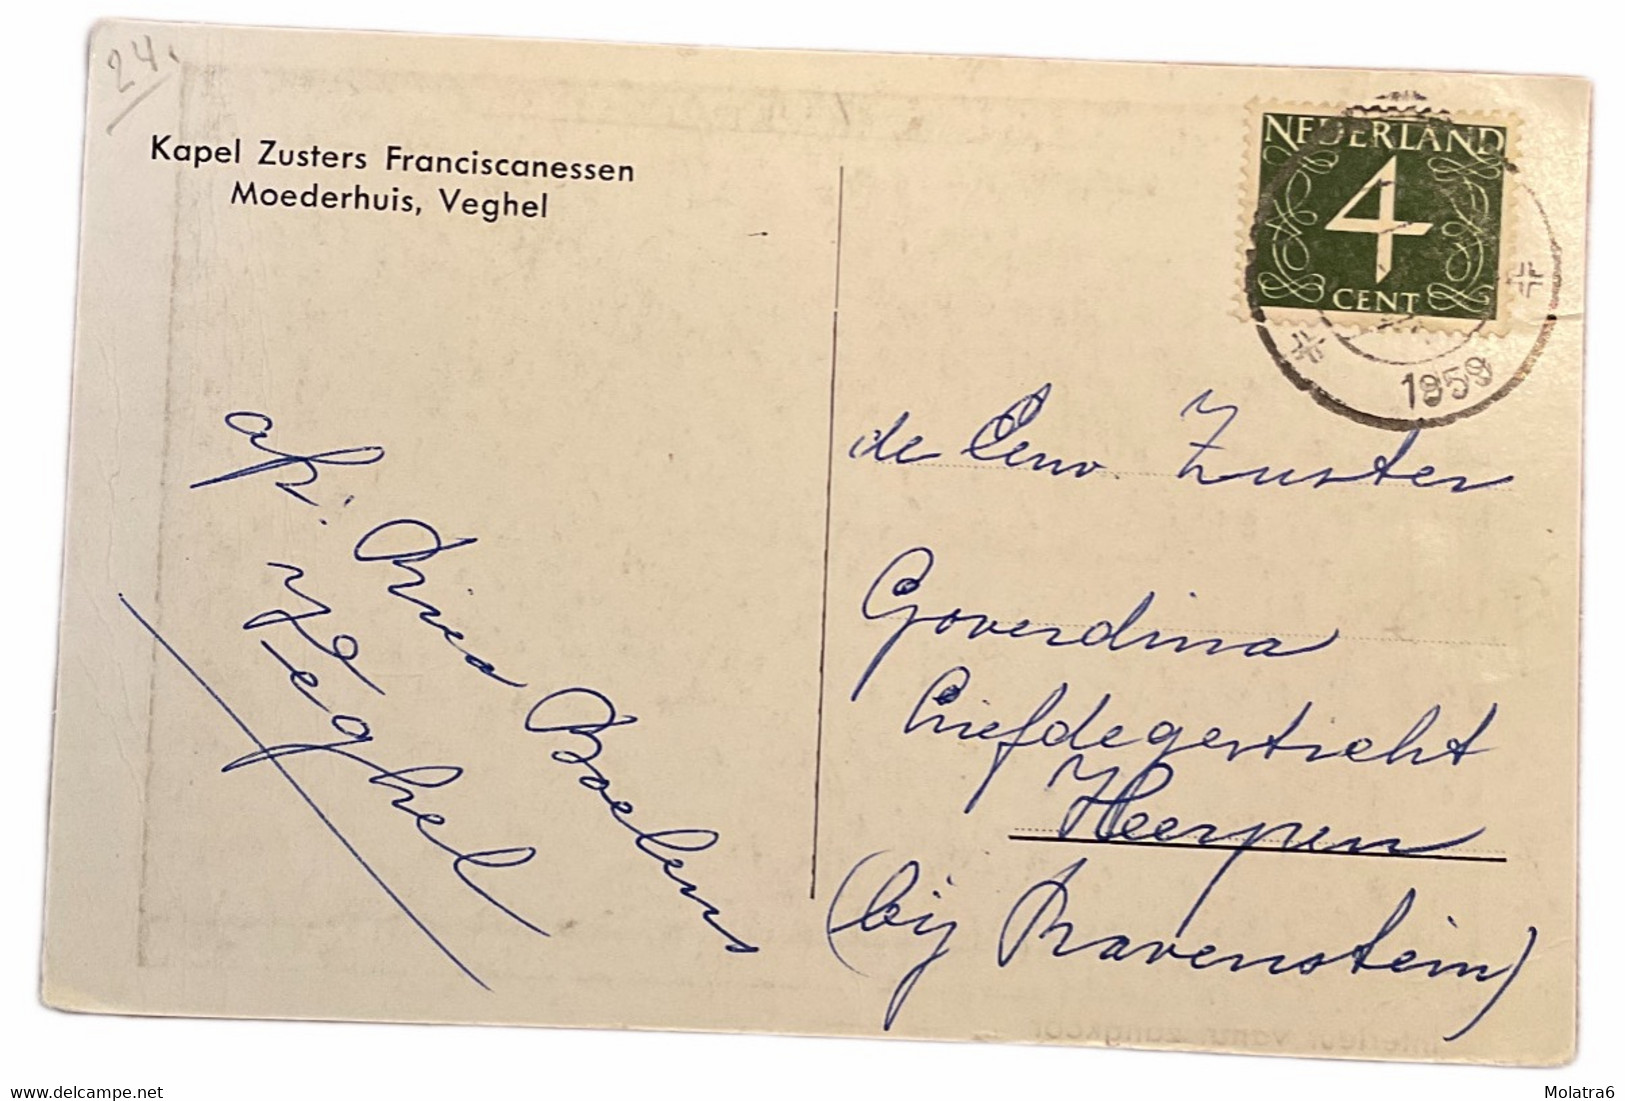 24.
Kapel Zusters Franciscanessen
Moederhuis, Veghel
NEDERLAND
4
CENT
1959
de Eerw Zuster
Goverdina
Liefdegesticht
Heerpen
(bij Ravenstein)
afz. Riea Boelens
Veghel
Interieur vanuit zangkoor
delcampe.net
Molatra6